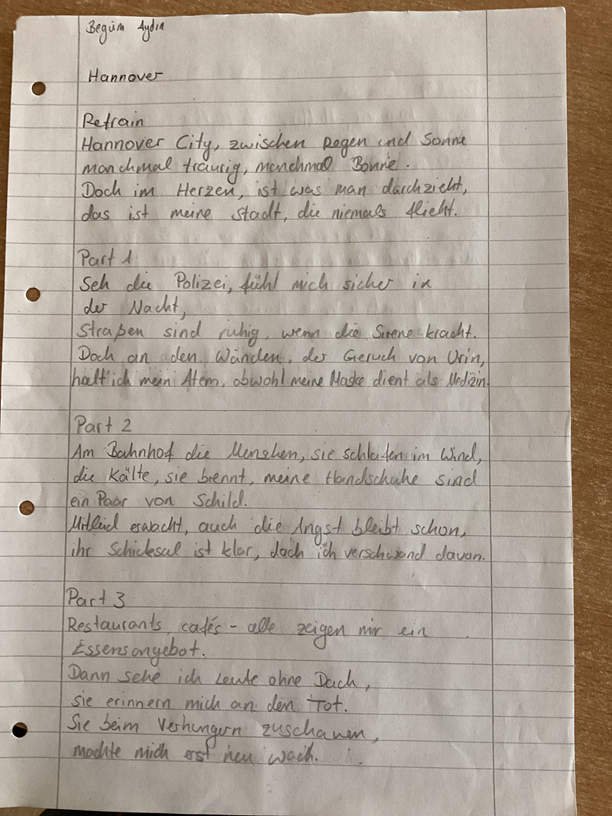 Begüm Aydın
Hannover
Refrain
Hannover City, zwischen Regen und Sonne
manchmal traurig, manchmal Bonne.
Doch im Herzen, ist was man durchzieht,
das ist meine Stadt, die niemals flieht.
Part 1
Seh die Polizei, fühl mich sicher in
der Nacht,
Straßen sind ruhig, wenn die Sirene kracht.
Doch an den Wänden, der Geruch von Urin,
halt' ich mein Atem, obwohl meine Maske dient als Medizin.
Part 2
Am Bahnhof die Menshen, sie schlafen im Wind,
die Kälte, sie brennt, meine Handschuhe sind
ein Paar von Schild.
Mitleid erwacht, auch die Angst bleibt schon,
ihr Schicksal ist klar, doch ich verschwand davon.
Part 3
Restaurants, cafés - alle zeigen mir ein
Essensangebot.
Dann sehe ich Leute ohne Dach,
sie erinnern mich an den Tot.
Sie beim Verhungern zuschauen,
machte mich erst neu wach.